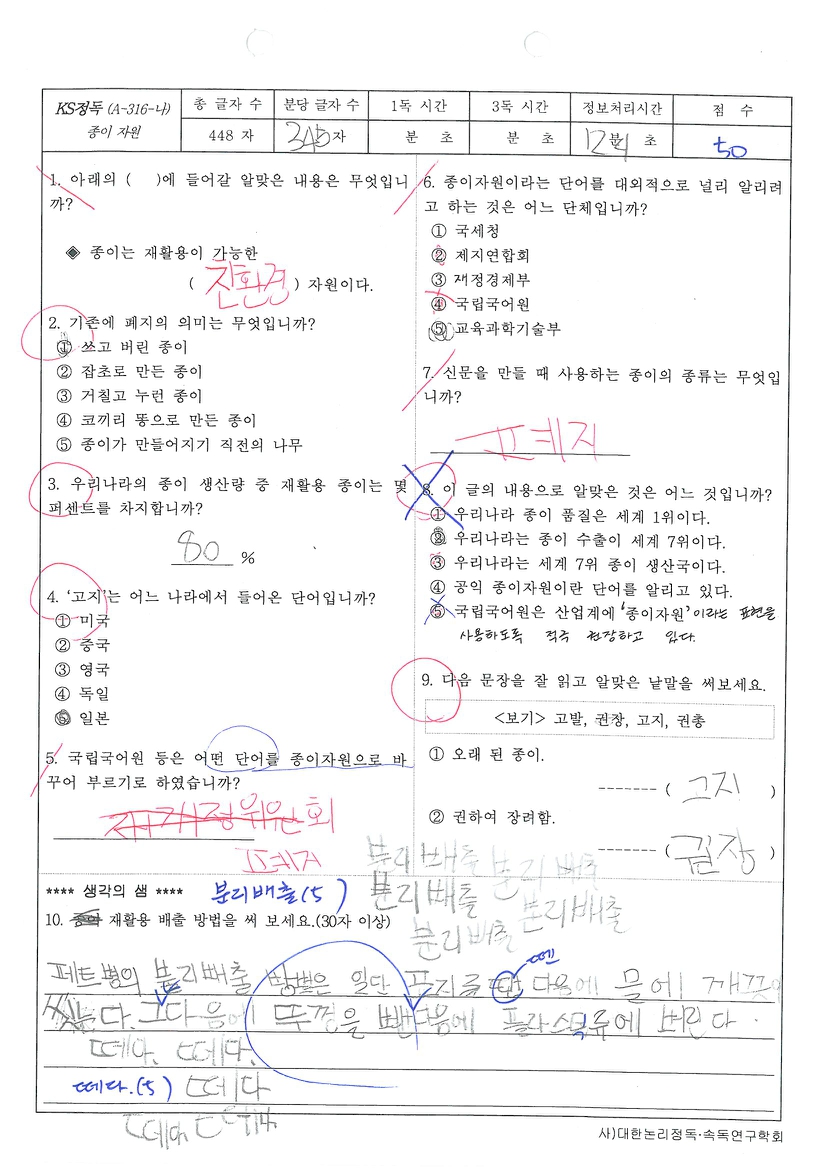 KS정독 (A-316-나)
종이 자원
총 글자 수 분당 글자 수 1독 시간 3독 시간 정보처리시간 점 수
448 자 345자 분 초 분 초 12분 4 초 50
1. 아래의 ( )에 들어갈 알맞은 내용은 무엇입니
까?
◈ 종이는 재활용이 가능한
( 친환경 ) 자원이다.
2. 기존에 폐지의 의미는 무엇입니까?
① 쓰고 버린 종이
② 잡초로 만든 종이
③ 거칠고 누런 종이
④ 코끼리 똥으로 만든 종이
⑤ 종이가 만들어지기 직전의 나무
3. 우리나라의 종이 생산량 중 재활용 종이는 몇
퍼센트를 차지합니까?
80 %
4. ‘고지’는 어느 나라에서 들어온 단어입니까?
① 미국
② 중국
③ 영국
④ 독일
⑤ 일본
5. 국립국어원 등은 어떤 단어를 종이자원으로 바
꾸어 부르기로 하였습니까?
6. 종이자원이라는 단어를 대외적으로 널리 알리려
고 하는 것은 어느 단체입니까?
① 국세청
② 제지연합회
③ 재정경제부
④ 국립국어원
⑤ 교육과학기술부
7. 신문을 만들 때 사용하는 종이의 종류는 무엇입
니까?
8. 이 글의 내용으로 알맞은 것은 어느 것입니까?
① 우리나라 종이 품질은 세계 1위이다.
② 우리나라는 종이 수출이 세계 7위이다.
③ 우리나라는 세계 7위 종이 생산국이다.
④ 공익 종이자원이란 단어를 알리고 있다.
⑤ 국립국어원은 산업계에 ‘종이자원’이라는 표현을
사용하도록 적극 권장하고 있다.
9. 다음 문장을 잘 읽고 알맞은 낱말을 써보세요.
<보기> 고발, 권장, 고지, 권총
① 오래 된 종이.
------- ( 고지 )
② 권하여 장려함.
------- ( 권장 )
**** 생각의 샘 **** 분리배출(5)
분리배출 분리배출
분리배출 분리배출
분리배출
10. 종이 재활용 배출 방법을 써 보세요.(30자 이상)
뗀
페트병의 분리배출 방법은 일단 다음에 물에
씻는다. 그다음에 뚜껑을 뺀다음에 플라스틱류에 버린다.
떼다. 떼다.
떼다.(5) 떼다
떼다 떼다
사)대한논리정독·속독연구학회